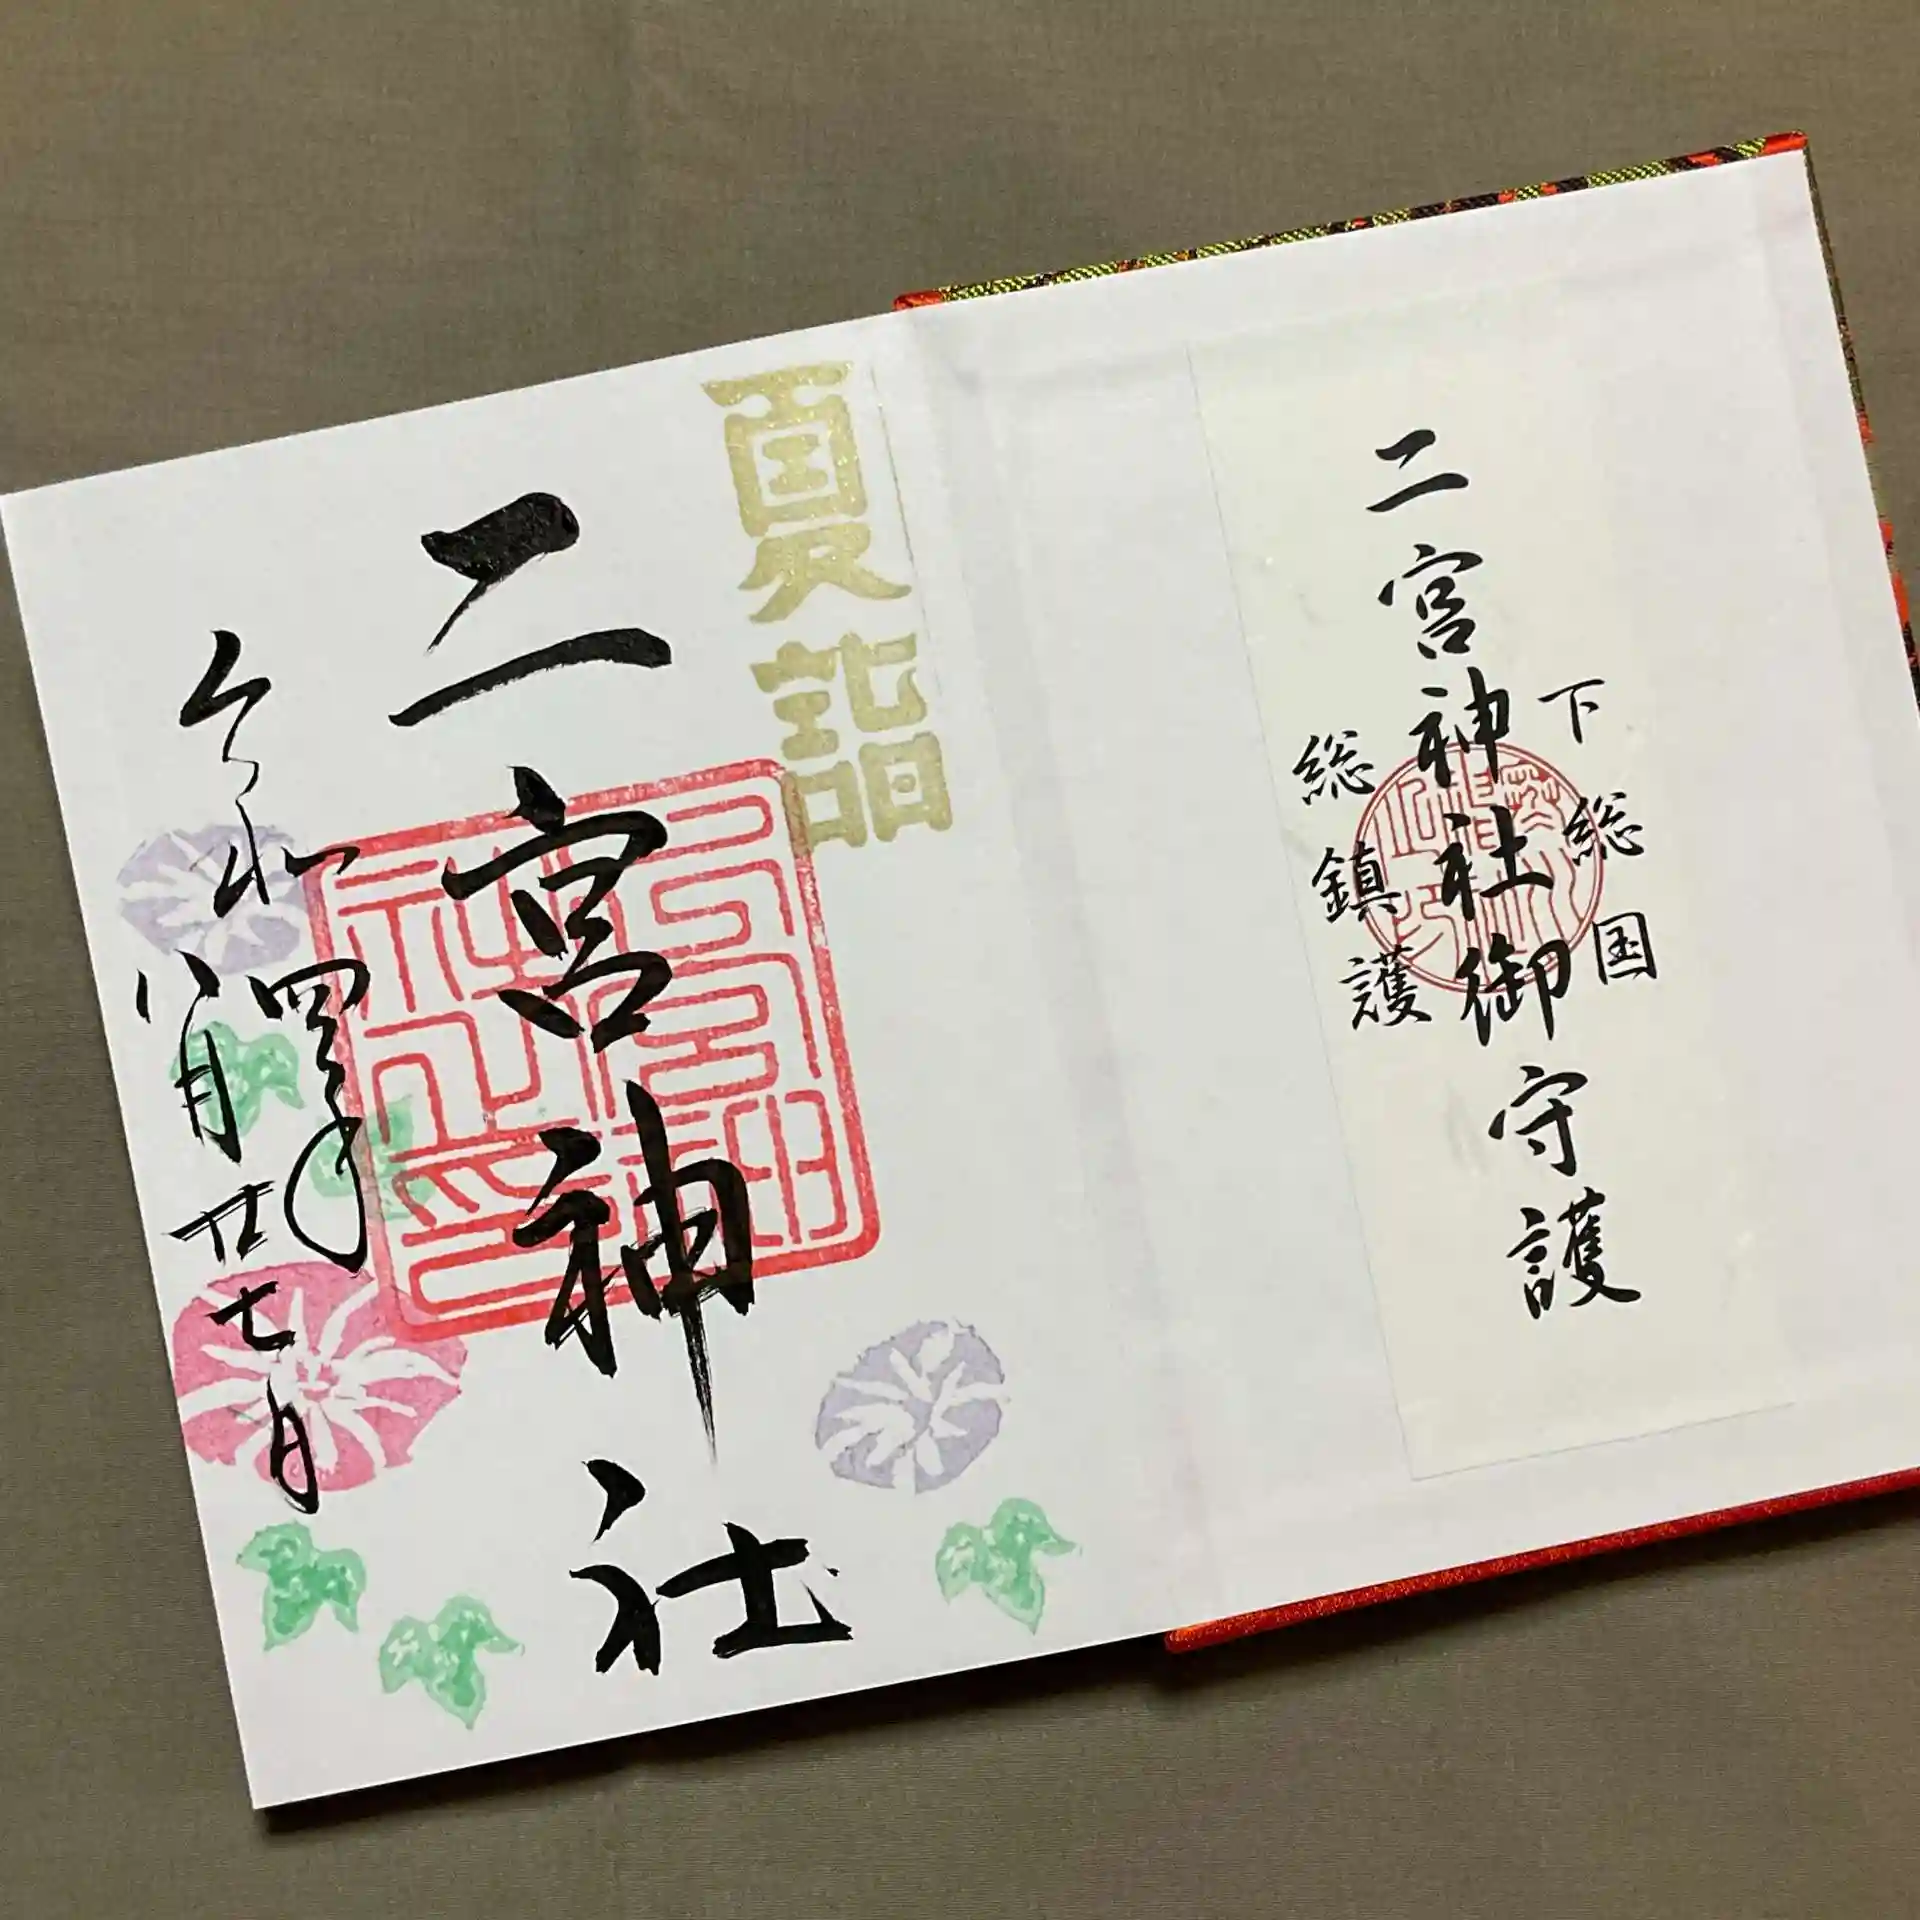 下総国
二宮神社御守護
総鎮護
夏詣
二宮神社
令和四年
八月廿七日